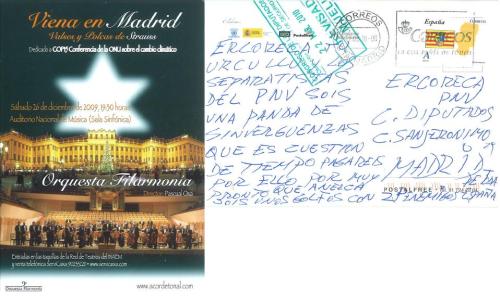 Viena en Madrid
Valses y Polcas de Strauss
Dedicado a COP15 Conferencia de la ONU sobre el cambio climático
Sábado 26 de diciembre de 2009, 19:30 horas
Auditorio Nacional de Música (Sala Sinfónica)
Orquesta Filarmonía
Director: Pascual Osa
Entradas en las taquillas de la Red de Teatros del INAEM
y venta telefónica ServiCaixa
www.servicaixa.com
Orquesta Filarmonía
www.acordetonal.com
CORREOS
España
CORREOS
A
ERCORECA
URCULLU LOS
SEPARATISTAS
DEL PNV SOIS
UNA PANDA DE
SINVERGUENZAS
QUE ES CUESTION
DE TIEMPO PAGAREIS
POR ELLO POR MUY
PRONTO QUE
SOIS UNOS GOLFOS
ERCORECA
PNV
C. DIPUTADOS
C. SAN JERONIMO
MADRID
POSTALFREE
ENEMIGOS ESPAÑA